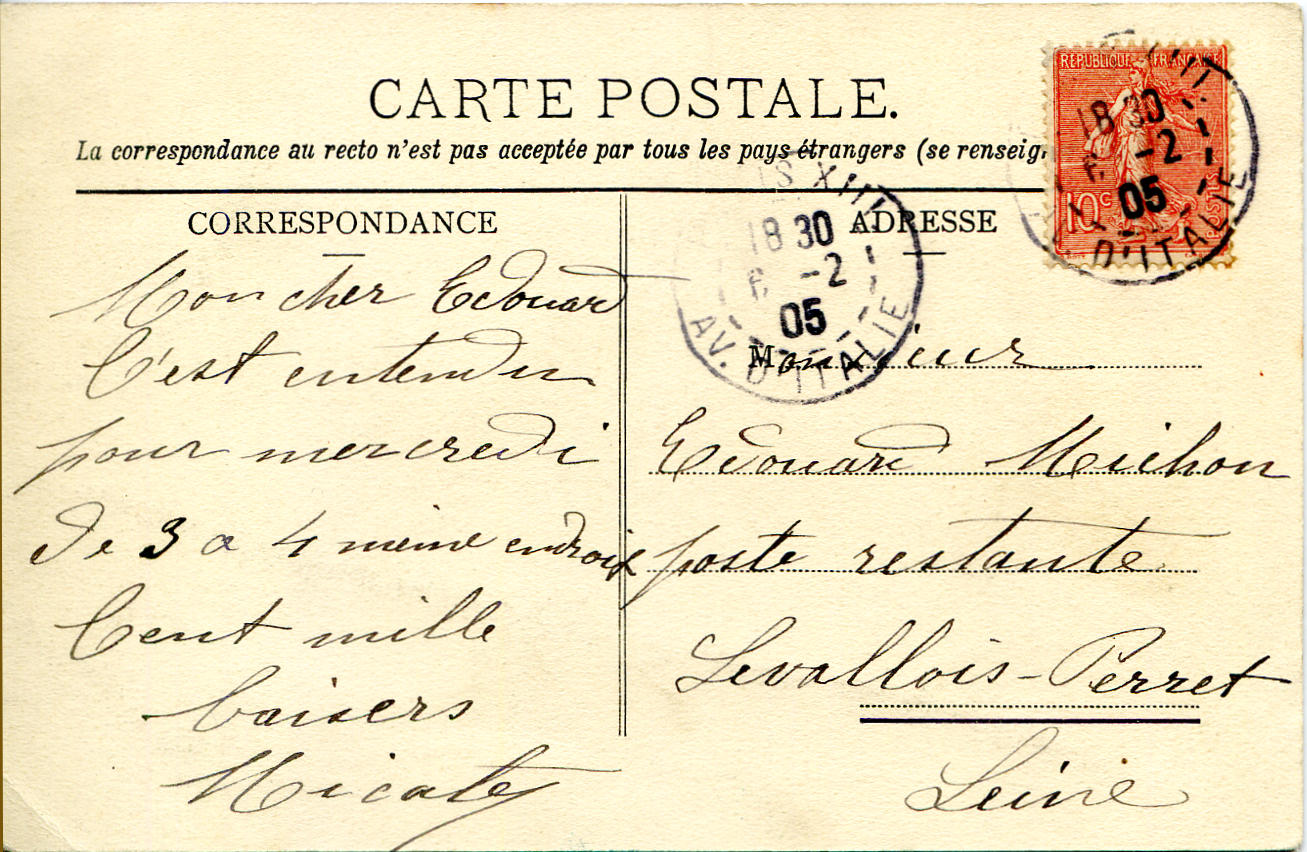 CARTE POSTALE.
La correspondance au recto n'est pas acceptée par tous les pays étrangers (se renseig
RÉPUBLIQUE FRANÇAISE
10c
POSTES
18 30
-2
05
D'ITALIE
IS XIII
18 30
-2
05
AV. D'ITALIE
CORRESPONDANCE
Mon cher Edouard
C'est entendu
pour mercredi
de 3 a 4 même endroit
Cent mille
baisers
ADRESSE
Monsieur
Edouard Michon
poste restante
Levallois-Perret
Seine